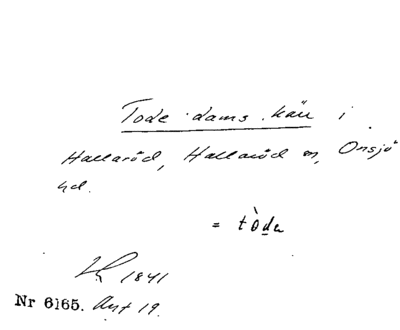 Tode dams kär i
Hallaröd, Hallaröd sn, Onsjö
hd.
= tòda
1841
Nr 6165. Avt 19.